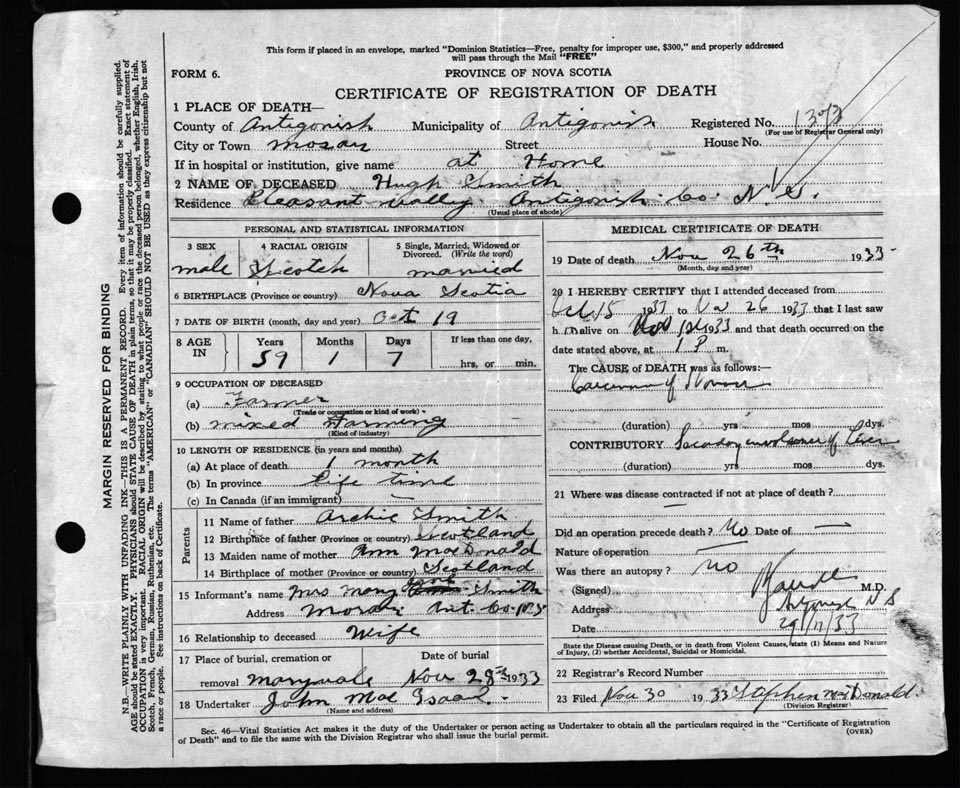 This form if placed in an envelope, marked "Dominion Statistics—Free, penalty for improper use, $300," and properly addressed
will pass through the Mail "FREE"
FORM 6.
PROVINCE OF NOVA SCOTIA
CERTIFICATE OF REGISTRATION OF DEATH
1 PLACE OF DEATH—
County of Antigonish Municipality of Antigonish Registered No. 1373
(For use of Registrar General only)
City or Town Morar Street House No.
If in hospital or institution, give name at Home
2 NAME OF DECEASED Hugh Smith
Residence Pleasant Vally Antigonish Co N.S.
(Usual place of abode)
PERSONAL AND STATISTICAL INFORMATION
3 SEX 4 RACIAL ORIGIN 5 Single, Married, Widowed or
Divorced. (Write the word)
male Scotch married
6 BIRTHPLACE (Province or country) Nova Scotia
7 DATE OF BIRTH (month, day and year) Oct 19
8 AGE IN Years Months Days If less than one day,
59 1 7 hrs. or min.
9 OCCUPATION OF DECEASED
(a) Farmer
(Trade or occupation or kind of work)
(b) mixed Farming
(Kind of industry)
10 LENGTH OF RESIDENCE (in years and months)
(a) At place of death 1 month
(b) In province Life time
(c) In Canada (if an immigrant) —
Parents
11 Name of father Archie Smith
12 Birthplace of father (Province or country) Scotland
13 Maiden name of mother Ann MacDonald
14 Birthplace of mother (Province or country) Scotland
15 Informant's name Mrs Mary Smith
Address Morar Ant. Co. N.S
16 Relationship to deceased Wife
17 Place of burial, cremation or Date of burial
removal Maryvale Nov 28th 1933
18 Undertaker John Mac Isaac
(Name and address)
MEDICAL CERTIFICATE OF DEATH
19 Date of death Nov 26th 1933
(Month, day and year)
20 I HEREBY CERTIFY that I attended deceased from
Oct 15 1933 to Nov 26 1933 that I last saw
h im alive on 1933 and that death occurred on the
date stated above, at 1 P m.
The CAUSE of DEATH was as follows:
Carcinoma of
(duration) yrs mos dys.
CONTRIBUTORY Secondary of Liver
(duration) yrs mos dys.
21 Where was disease contracted if not at place of death?
Did an operation precede death? No Date of —
Nature of operation
Was there an autopsy? no
(Signed) M.D.
Address N S
Date 29/11/33
State the Disease causing Death, or in death from Violent Causes, state (1) Means and Nature
of Injury, (2) whether Accidental, Suicidal or Homicidal.
22 Registrar's Record Number
23 Filed Nov 30 1933 Stephen McDonald.
(Division Registrar)
Sec. 46—Vital Statistics Act makes it the duty of the Undertaker or person acting as Undertaker to obtain all the particulars required in the "Certificate of Registration
of Death" and to file the same with the Division Registrar who shall issue the burial permit.
(OVER)
MARGIN RESERVED FOR BINDING
N.B.—WRITE PLAINLY WITH UNFADING INK—THIS IS A PERMANENT RECORD. Every item of information should be carefully supplied.
AGE should be stated EXACTLY. PHYSICIANS should STATE CAUSE OF DEATH in plain terms, so that it may be properly classified. Exact statement of
OCCUPATION is very important. RACIAL ORIGIN will be described by stating to what people or race the deceased person belonged, whether English, Irish,
Scotch, French, German, Russian, Ruthenian, etc. The terms "AMERICAN" or "CANADIAN" SHOULD NOT BE USED as they express citizenship but not
a race or people. See instructions on back of Certificate.